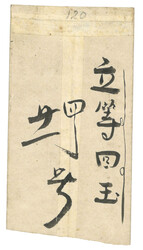 120
立等回玉
四
号